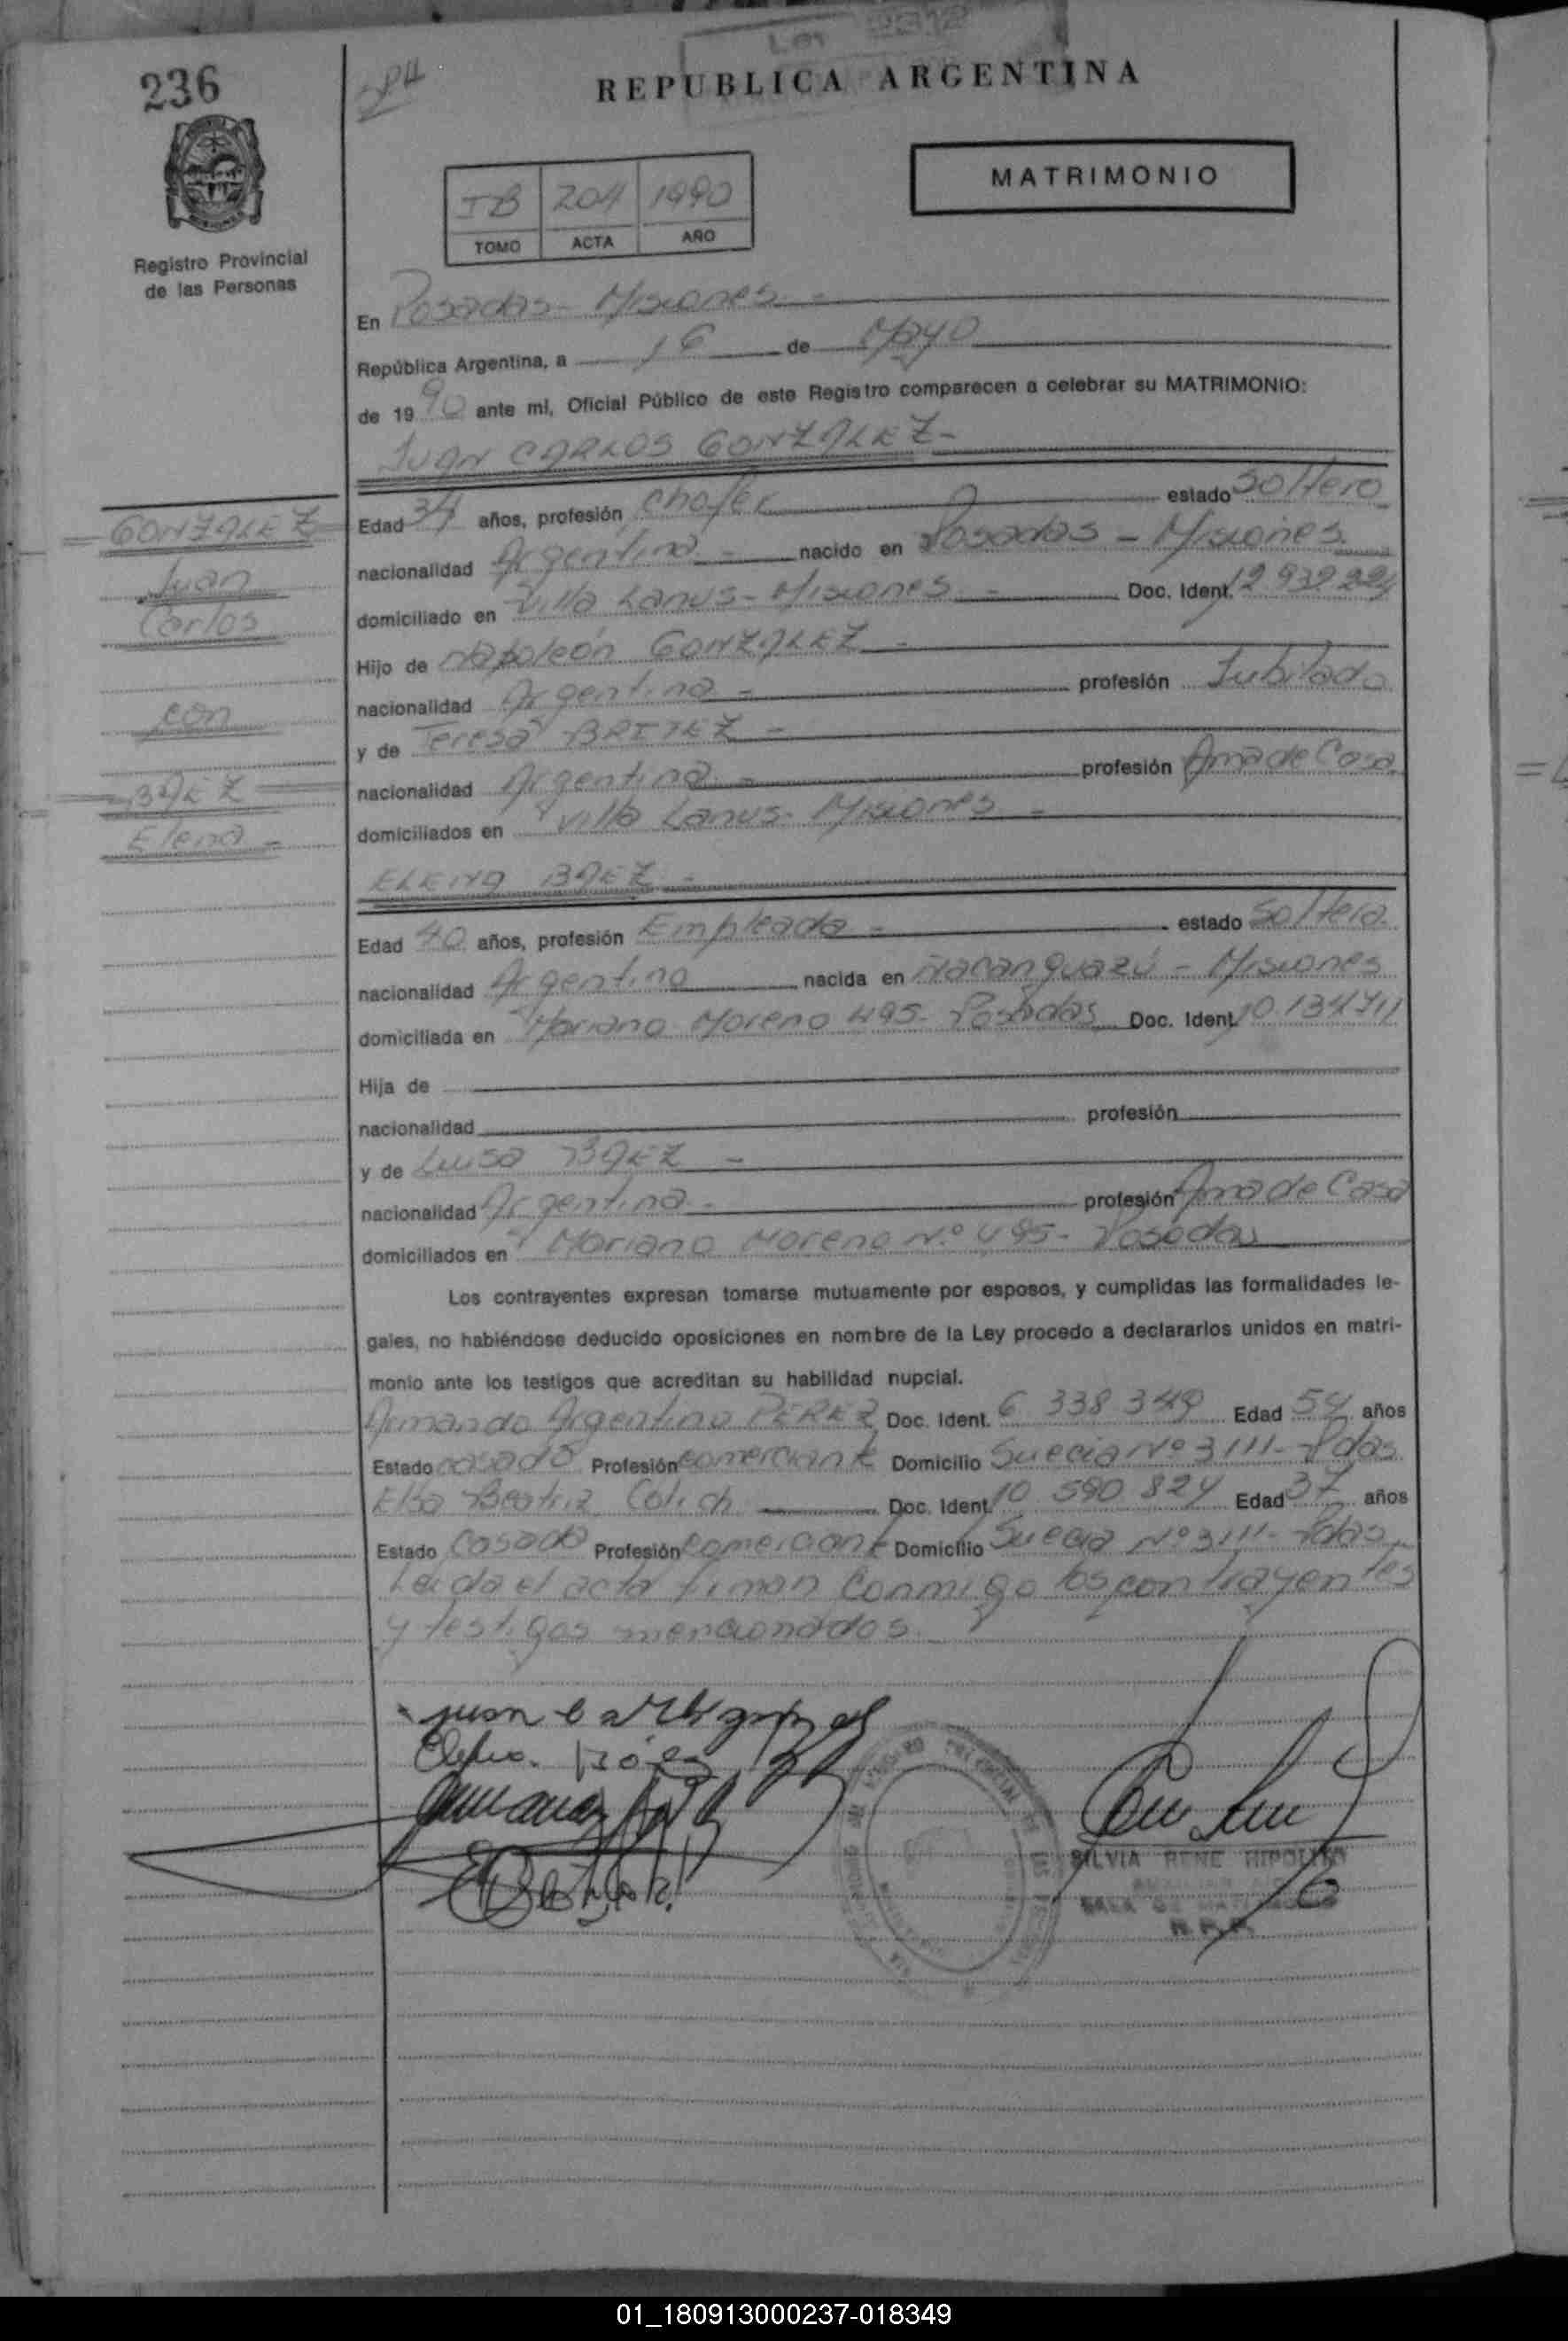 236
REPUBLICA ARGENTINA
MATRIMONIO
204 1990
TOMO ACTA AÑO
Registro Provincial
de las Personas
En Posadas - Misiones -
República Argentina, a 16 de Mayo
de 1990 ante mí, Oficial Público de este Registro comparecen a celebrar su MATRIMONIO:
JUAN CARLOS GONZALEZ -
GONZALEZ
Juan
Carlos
con
BAEZ
Elena -
Edad 34 años, profesión Chofer estado Soltero
nacionalidad Argentina - nacido en Posadas - Misiones
domiciliado en Villa Lanus - Misiones - Doc. Ident. 12 932 224
Hijo de Napoleón GONZALEZ -
nacionalidad Argentina - profesión Jubilado
y de Teresa BRITEZ -
nacionalidad Argentina - profesión Ama de Casa
domiciliados en Villa Lanus - Misiones -
ELENA BAEZ -
Edad 40 años, profesión Empleada - estado Soltera
nacionalidad Argentina nacida en Ñacanguazú - Misiones
domiciliada en Mariano Moreno 495 - Posadas Doc. Ident. 10.134.711
Hija de
nacionalidad profesión
y de Luisa BAEZ -
nacionalidad Argentina - profesión Ama de Casa
domiciliados en Mariano Moreno N.º 495 - Posadas
Los contrayentes expresan tomarse mutuamente por esposos, y cumplidas las formalidades le-
gales, no habiéndose deducido oposiciones en nombre de la Ley procedo a declararlos unidos en matri-
monio ante los testigos que acreditan su habilidad nupcial.
Armando Argentino PEREZ Doc. Ident. 6 338 349 Edad 54 años
Estado casado Profesión comerciante Domicilio Suecia Nº 3111 - Pdas
Elsa Beatriz Colich Doc. Ident. 10 590 824 Edad 37 años
Estado Casada Profesión Comerciante Domicilio Suecia Nº 3111 - Pdas
Leida el acta firman Conmigo los contrayentes
y testigos mencionados
SILVIA RENE HIPOLITO
01_180913000237-018349